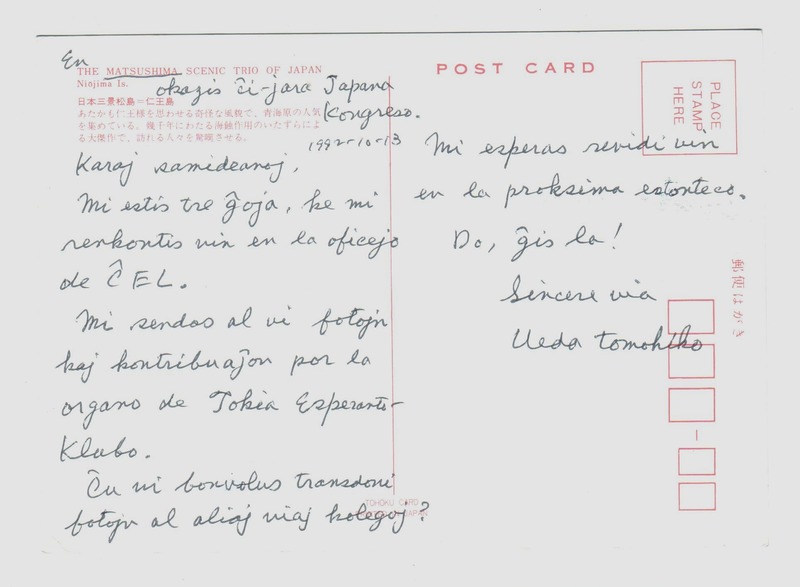 En
THE MATSUSHIMA SCENIC TRIO OF JAPAN
Niojima Is.
okazis ĉi-jara Japana
Kongreso.
日本三景松島=仁王島
あたかも仁王様を思わせる奇怪な風貌で、青海原の人気
を集めている。幾千年にわたる海蝕作用のいたずらによ
る大傑作で、訪れる人々を驚嘆させる。
1992-10-13
Karaj samideanoj,
Mi estis tre ĝoja, ke mi
renkontis vin en la oficejo
de ĈEL.
Mi sendas al vi fotojn
kaj kontribuaĵon por la
organo de Tokia Esperanto-
Klubo.
Ĉu vi bonvolus transdoni
fotojn al aliaj viaj kolegoj?
TOHOKU CARD
JAPAN
POST CARD
PLACE
STAMP
HERE
Mi esperas revidi vin
en la proksima estonteco.
Do, ĝis la!
Sincere via
Ueda Tomohiko
郵便はがき